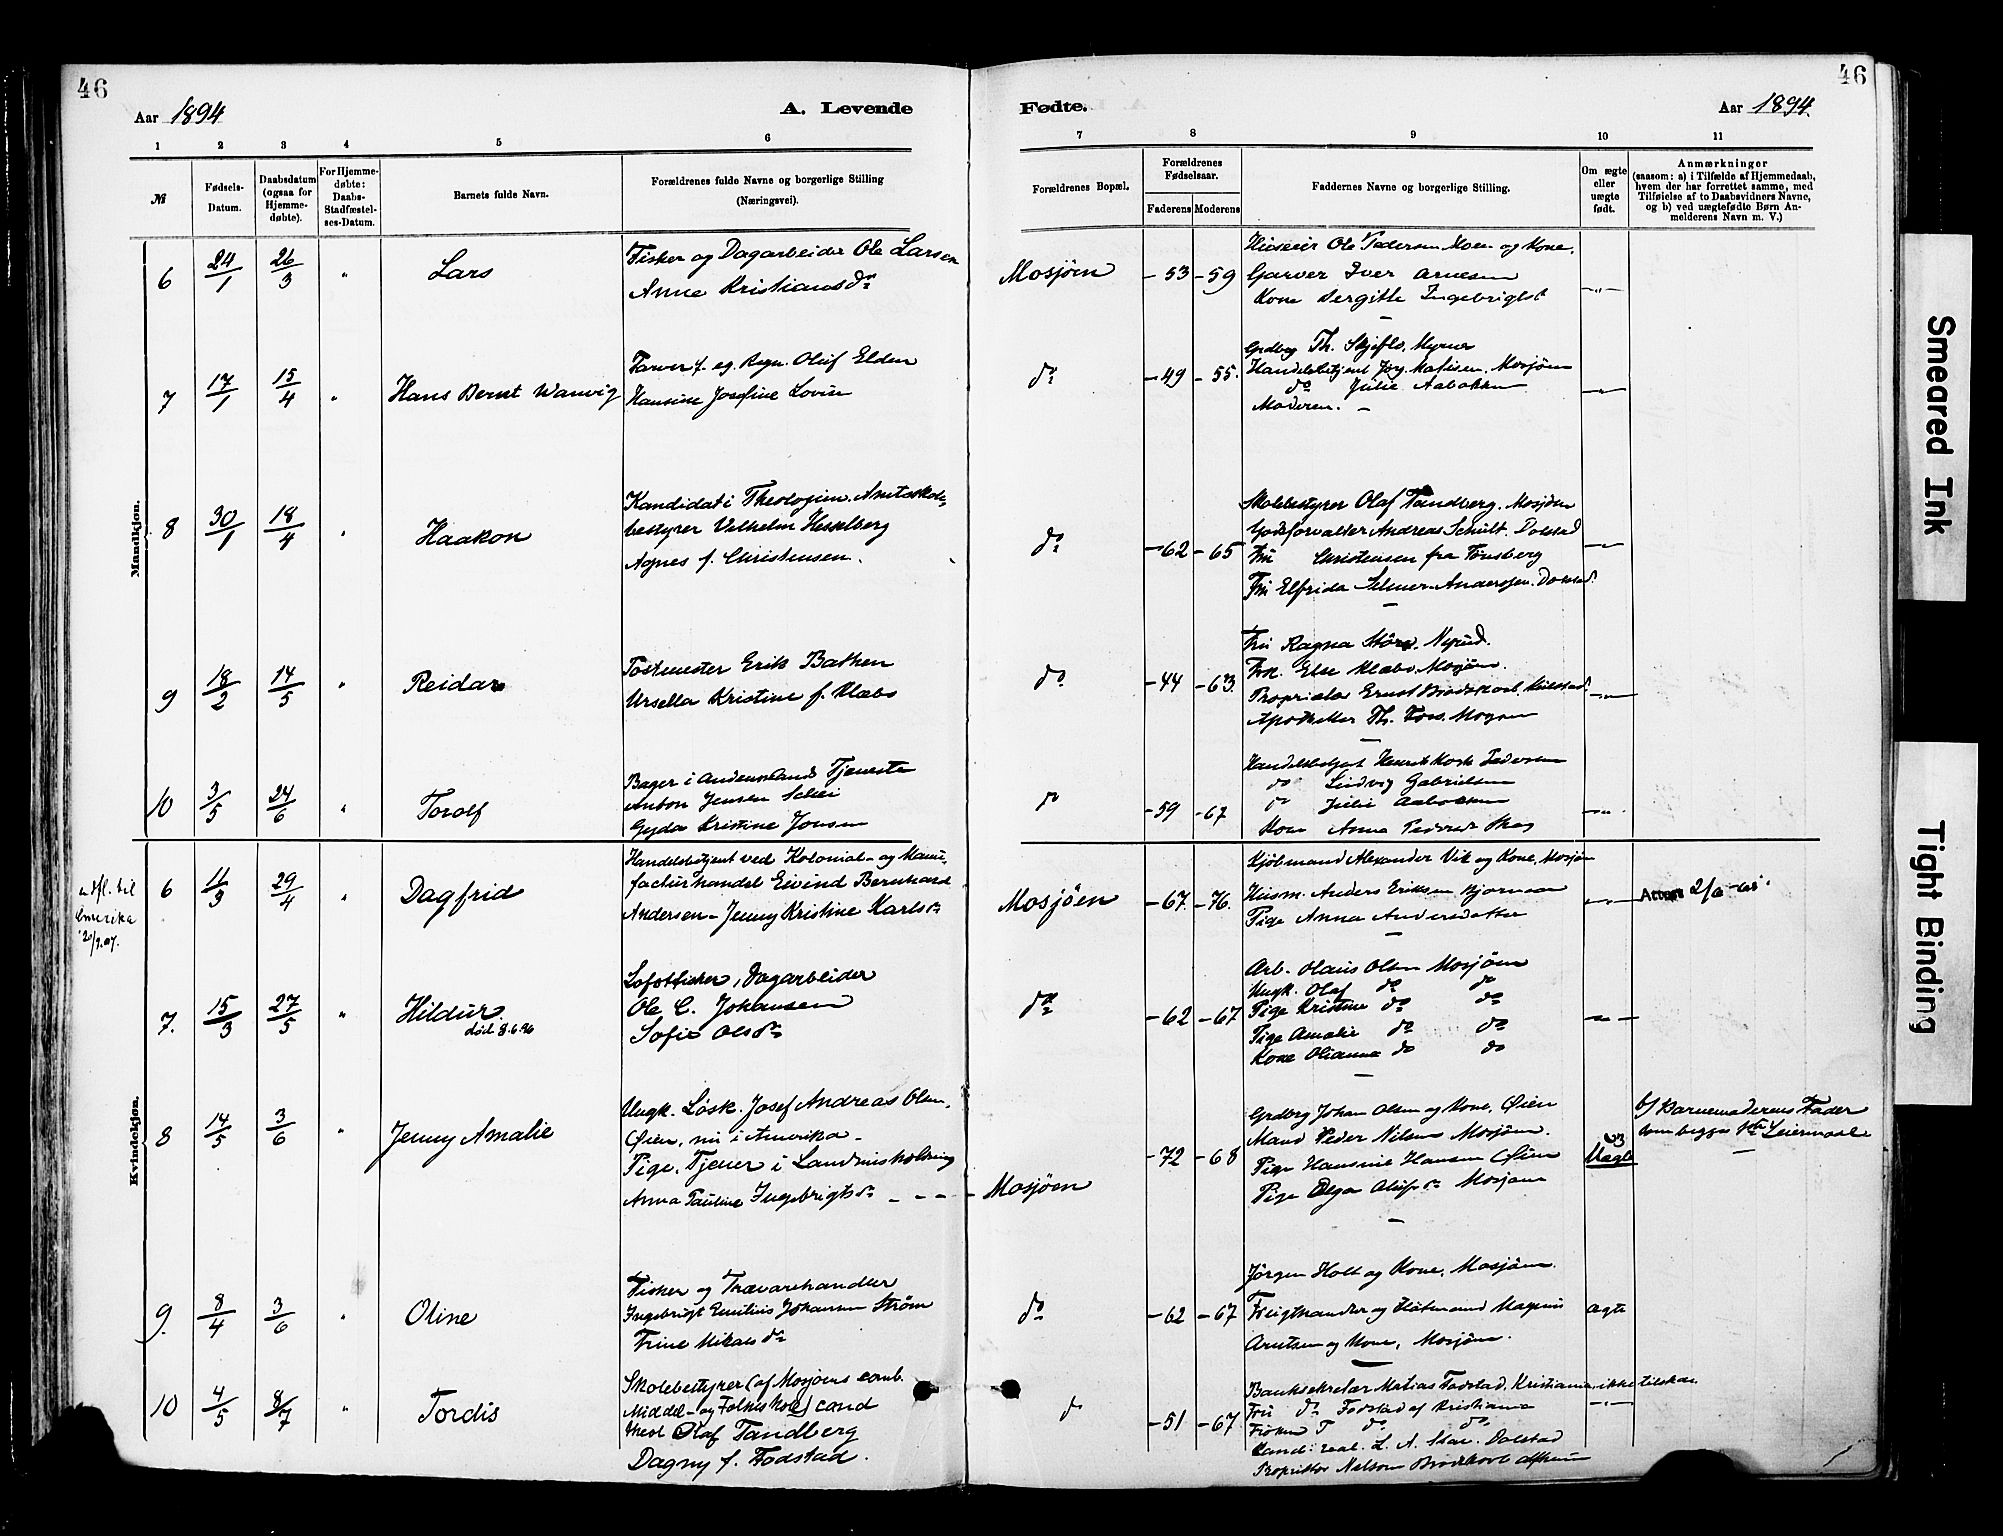 46
46
Aar 1894
A. Levende
Fødte.
Aar 1894.
1 2 3 4 5 6 7 8 9 10 11
№
Fødsels-
Datum.
Daabsdatum
(ogsaa for
Hjemme-
døbte).
For Hjemme-
døbte:
Daabs-
Stadfæstel-
ses-Datum.
Barnets fulde Navn.
Forældrenes fulde Navne og borgerlige Stilling
(Næringsvei).
Forældrenes Bopæl.
Forældrenes
Fødselsaar.
Faderens Moderens
Faddernes Navne og borgerlige Stilling.
Om ægte
eller
uægte
født.
Anmærkninger
(saasom: a) i Tilfælde af Hjemmedaab,
hvem der har forrettet samme, med
Tilføielse af to Daabsvidners Navne,
og b) ved uægtefødte Børn An-
melderens Navn m. V.)
Mandkjøn.
6 24/1 26/3 " Lars
Fisker og Dagarbeider Ole Larsen
Anne Kristiansdr
Mosjøen -53 -59
Ole Pedersen Moen og Kone.
Garver Iver Arnesen
Kone Ingebrigtst
7 17/1 15/4 " Hans Bernt Wanvig
Oluf Elden
Hansine Josefine Lovise
do -49 -55.
Th. Skjeflo, Myrnes
Handelsbetjent Jørg. Matisen, Mosjøen
do Julie Aabakken
Moderen.
8 30/1 18/4 " Haakon
Kandidat i Theologien. Amtsskole-
bestyrer Vilhelm Hesselberg
Agnes f. Christensen.
do -62 -65
Skolebestyrer Olaf Tandberg. Mosjøen
Godsforvalter Andreas Schult. Dolstad
Fru Christensen fra Tønsberg
Fru Elfrida Selmer-Anderssen. Dolstad.
9 18/2 14/5 " Reidar
Postmester Erik Bathen
Ursella Kristine f. Klæbo
do -44 -63.
Fru Ragna
Frk. Else Klæbo, Mosjøen.
Proprietær Ernst
Apotheker Th.
10 3/5 24/6 " Torolf
Bager i Andenmands Tjeneste
Anton Jensen Schei
Gyda Kristine Jonsen
do -59 -67
Handelsbetjent Henrik Pedersen
do Ludvig Gabrielsen
do Julie Aabakken
Kone Anna
Kvindekjøn.
udfl. til
Amerika
6 11/3 29/4 Dagfrid
Handelsbetjent ved Kolonial- og Manu-
facturhandel Eivind Bernhard
Andersen - Jenny Kristine Karlsdr
Mosjøen -67. -76.
Kjøbmand Alexander Vik og Kone, Mosjøen
Husm. Anders Eriksen Bjørnaa
Pige Anna Andersdatter
7. 15/3 27/5 " Hildur.
død 8.6.96
Lofotfisker, Dagarbeider
Ole C. Johansen
Sofie Olsdr
do -62 -67
Arb. Olaus Olsen Mosjøen
Ungk. Olaf do do
Pige Kristine do do
Pige Amalie do do
Kone Olianna do do
8 14/5 3/6 " Jenny Amalie
Ungk. Løsk. Josef Andreas Olsen,
Øien, nu i Amerika -
Pige, Tjener i Landhusholdning
Anna Pauline Ingebrigtsdr - - - - Mosjøen
-72 -68
Grdbrg Johan Olsen og Kone, Øien
Mand Peder Nilsen Mosjøen.
Pige Hansine Hansen Øien
Pige Olga Olufsdr Mosjøen
Uægte
b) Barnemoderens Fader
som begges 1ste Leiermaal
9. 8/4 3/6 " Oline
Fisker og Trævarehandler
Ingebrigt Emilius Johansen Strøm
Trine Mikalsdr
do -62 -67
Jørgen Holt og Kone, Mosjøen.
Magnus
Arntsen og Kone, Mosjøen.
ægte
10 4/5 8/7 " Tordis
Skolebestyrer (af Mosjøens comb.
Middel- og Folkeskole) cand
theol Olaf Tandberg
Dagny f. Fodstad.
do -51 -67
Banksekretær Matias Fodstad, Kristiania
Fru do Fodstad af Kristiania
Frøken T do do
Cand: real. L. A. Dolstad
Proprietær Nelson
Smeared Ink
Tight Binding